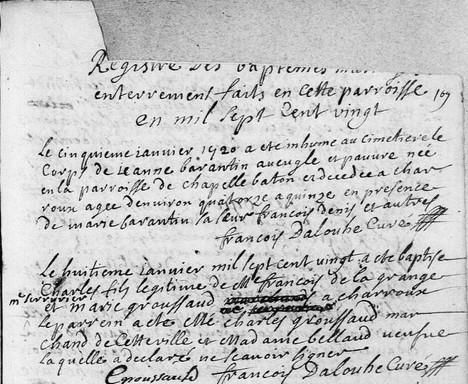 Registre des baptemes
enterrement faits en cette parroisse 107
en mil sept cent vingt
Le cinquieme ianvier 1720 a ete inhume au cimetiere le
Corps de ieanne barantin aveugle et pauvre née
en la parroisse de chapelle baton et decedee a char
roux agee denviron quatorze a quinze en presence
de marie barantin sa seur francois denis et autres
francois Dalouhe Curé
Le huitieme ianvier mil sept cent vingt a ete baptise
Charles fils legitime de Me francois de la grange
et marie groussaud a charroux
le parrein a ete Me charles groussaud mar
chand de Cette ville et Madame bellaud veufve
laquelle a declare ne scavoir signer
francois Dalouhe Curé